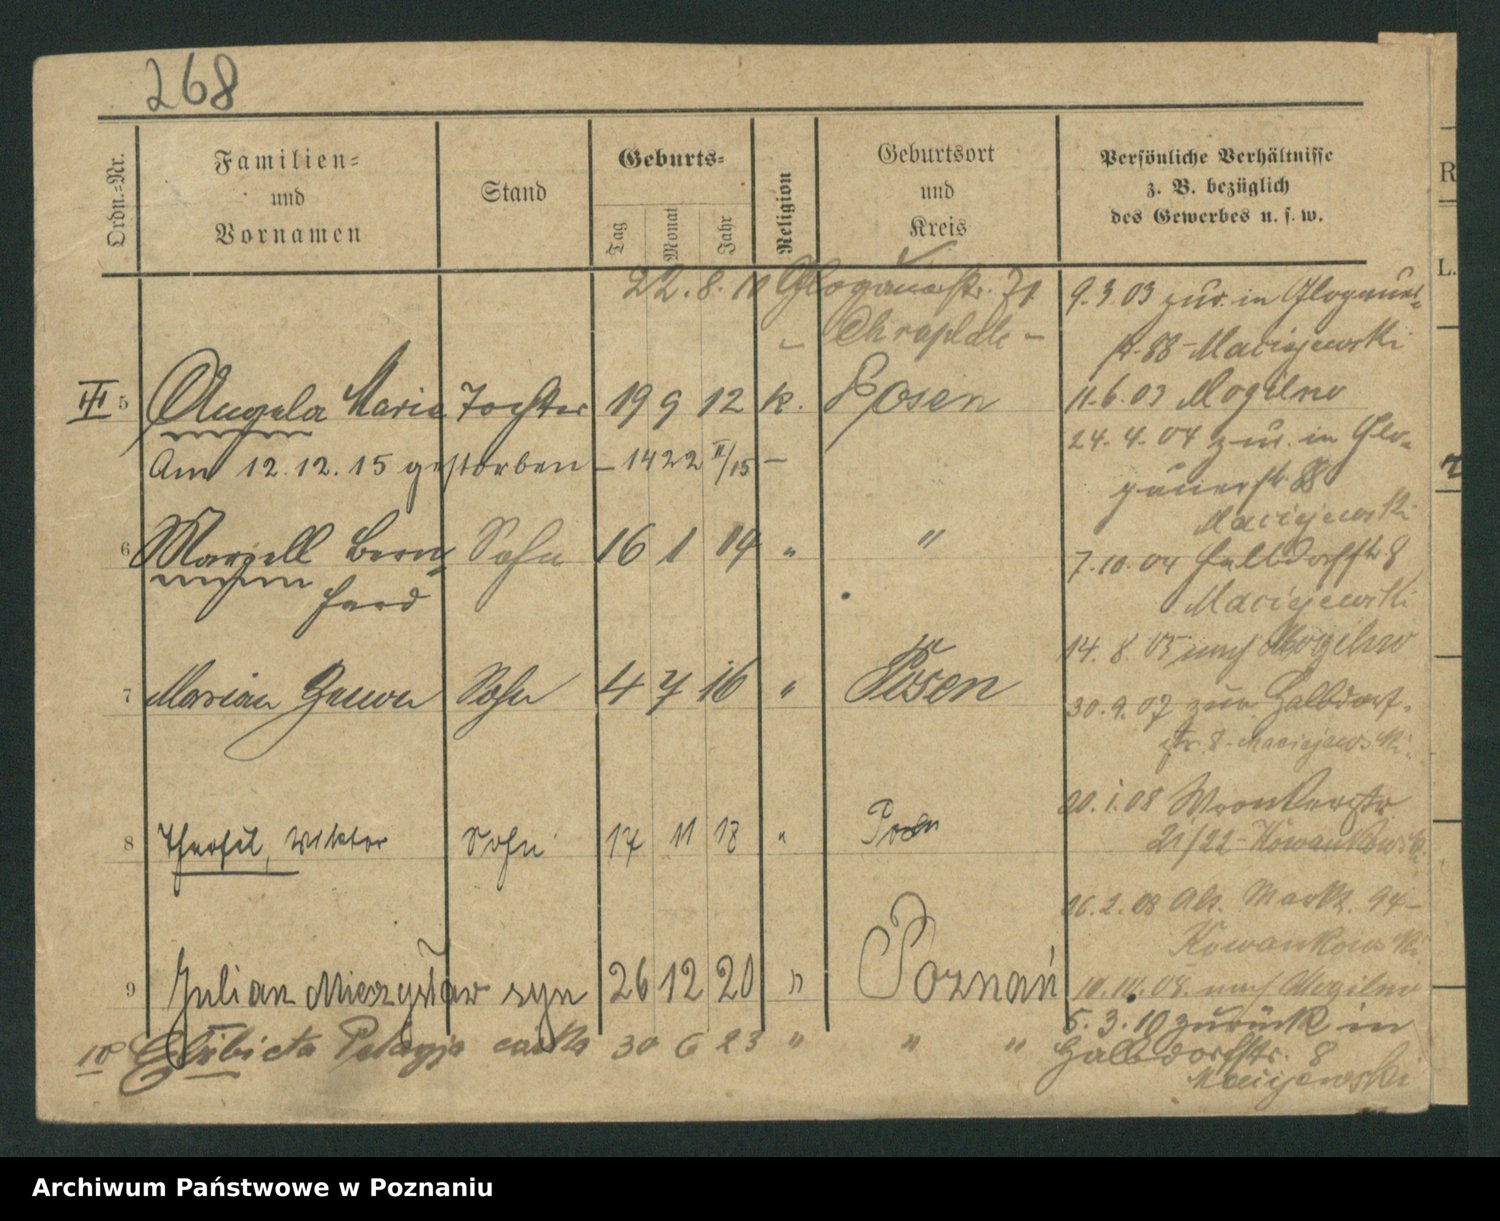 268
Ordn.=Nr.
Familien=
und
Vornamen
Stand
Geburts=
Tag
Monat
Jahr
Religion
Geburtsort
und
Kreis
Persönliche Verhältnisse
z. B. bezüglich
des Gewerbes u. s. w.
22. 8. 11 Glogauerstr. 71
- Chraplak -
III 5 Angela Maria Tochter 19 9 12 k. Posen
Am 12. 12. 15 gestorben - 1422 II/15 -
6 Marzell Bern=
hard Sohn 16 1 14 " "
7 Marian Sohn 4 7 16 " Posen
8 Theofil, Wiktor Sohn 17 11 18 " Posen
9 Julian Mieczysław syn 26 12 20 " Poznań
10 Elżbieta Pelagja córka 30 6 23 " " "
9. 3 03 zur. in Glogauer=
str. 88 - Maciejewski
11. 6. 03 Mogilno
24. 4. 04 zur. in Glo=
gauerstr. 88
Maciejewski
7. 10. 04 Halbdorfstr 8
Maciejewski
14. 8. 05 nach Mogilno
30. 9. 07 zur. Halbdorf-
str. 8 - Maciejewski.
20. 1. 08 Wronkerstr
21/22 - Kowankowski
26. 2. 08 Alt. Markt. 94 -
Kowankowski.
nach Mogilno
5. 3. 10 zurück in
Halbdorfstr. 8
Maciejewski
R
L.
Archiwum Państwowe w Poznaniu